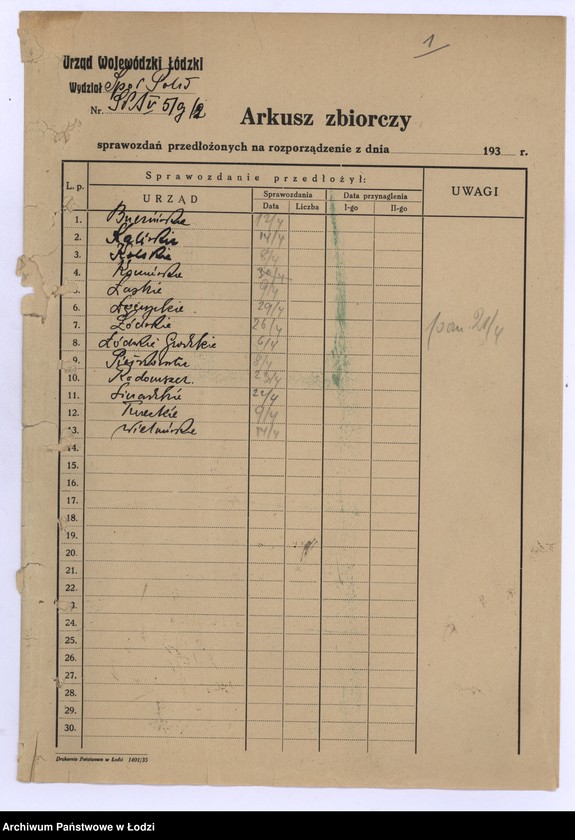 1
Urząd Wojewódzki Łódzki
Wydział Społ. Polit
Nr.
Arkusz zbiorczy
sprawozdań przedłożonych na rozporządzenie z dnia 193 r.
Sprawozdanie przedłożył:
L. p. URZĄD Sprawozdania Data przynaglenia UWAGI
Data Liczba I-go II-go
1. Brzezińskie 12/4
2. Kaliskie 14/4
3. Kolskie 8/4
4. Konińskie
5. Łaskie 9/4
6. Łęczyckie 29/4
7. Łódzkie 26/4
8. Łódzkie Grodzkie 6/4
9. Piotrkowskie 8/4
10. Radomszcz. 23/4
11. Sieradzkie 22/4
12. Tureckie 9/4
13. Wieluńskie 14/4
14.
15.
16.
17.
18.
19.
20.
21.
22.
23.
24.
25.
26.
27.
28.
29.
30.
Drukarnia Państwowa w Łodzi 1401/35
Archiwum Państwowe w Łodzi